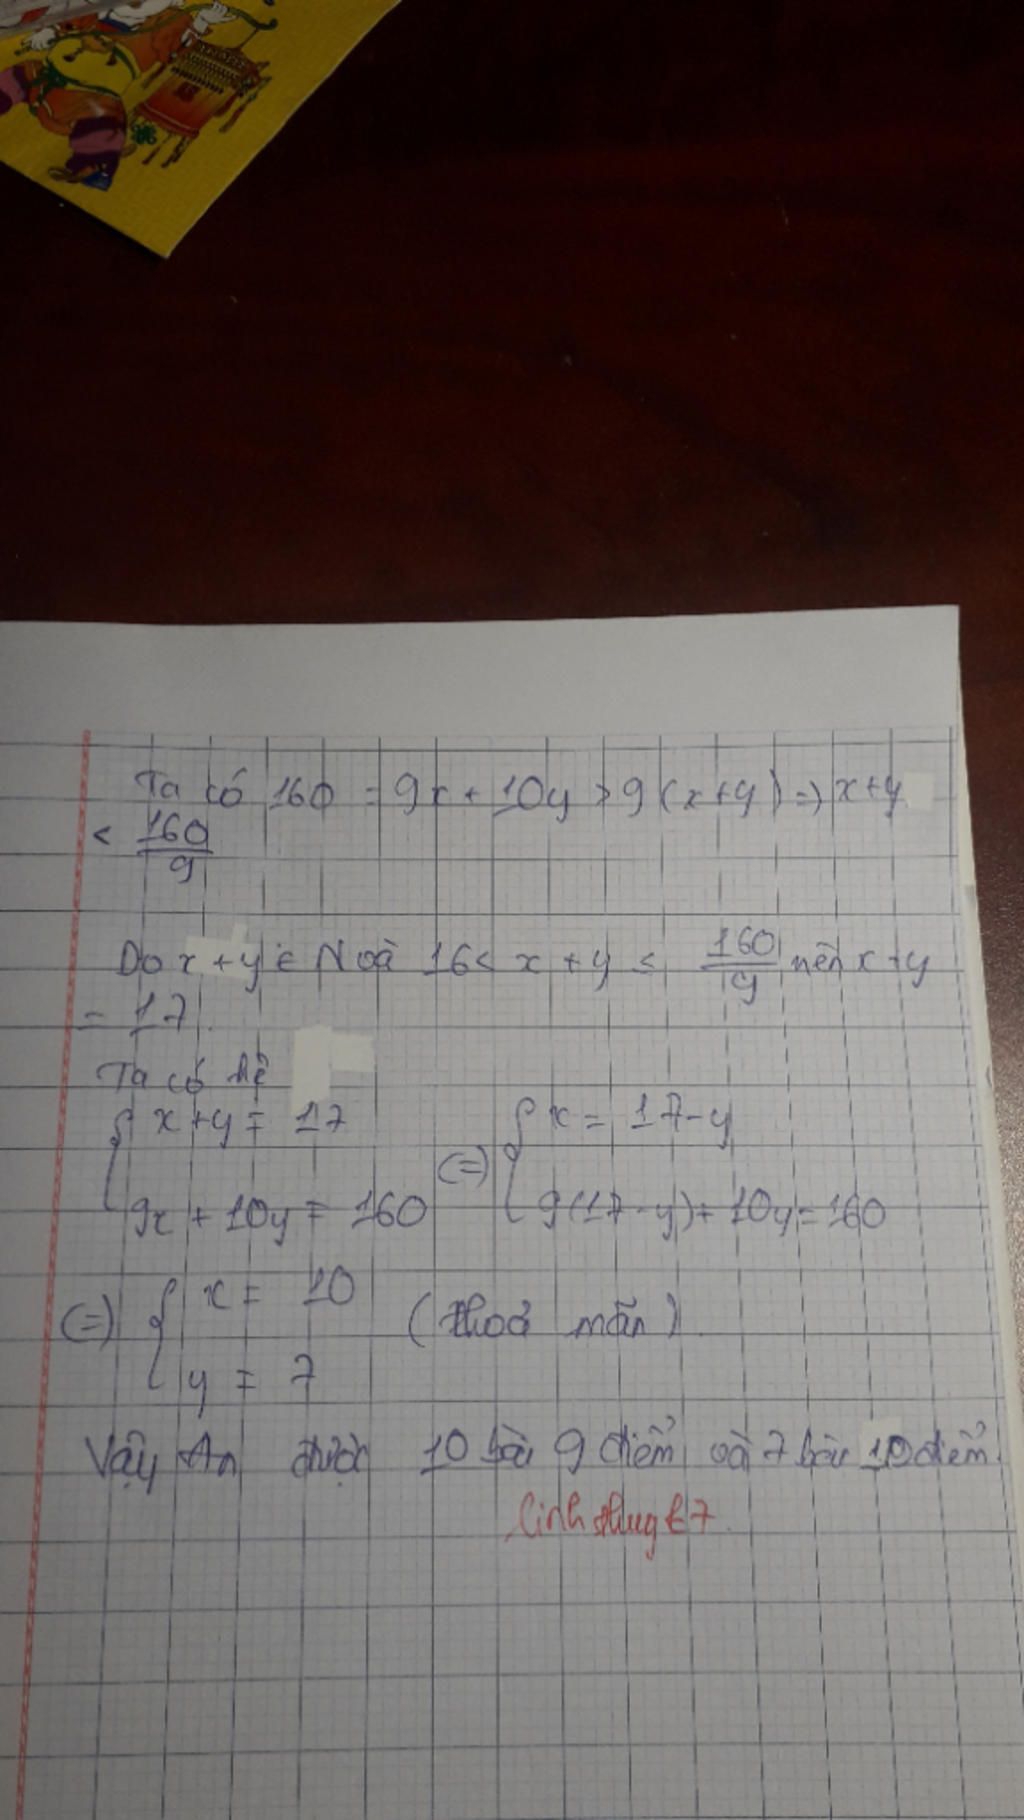 Ta có 160 = 9x + 10y > 9(x+y) => x+y
< 160/9
Do x+y ∈ N và 16 < x + y ≤ 160/9 nên x+y
= 17.
Ta có hệ
{ x+y = 17 (=) { x = 17-y
9x + 10y = 160 9(17-y) + 10y = 160
(=) { x = 10 (thoả mãn).
y = 7
Vậy An được 10 bài 9 điểm và 7 bài 10 điểm.